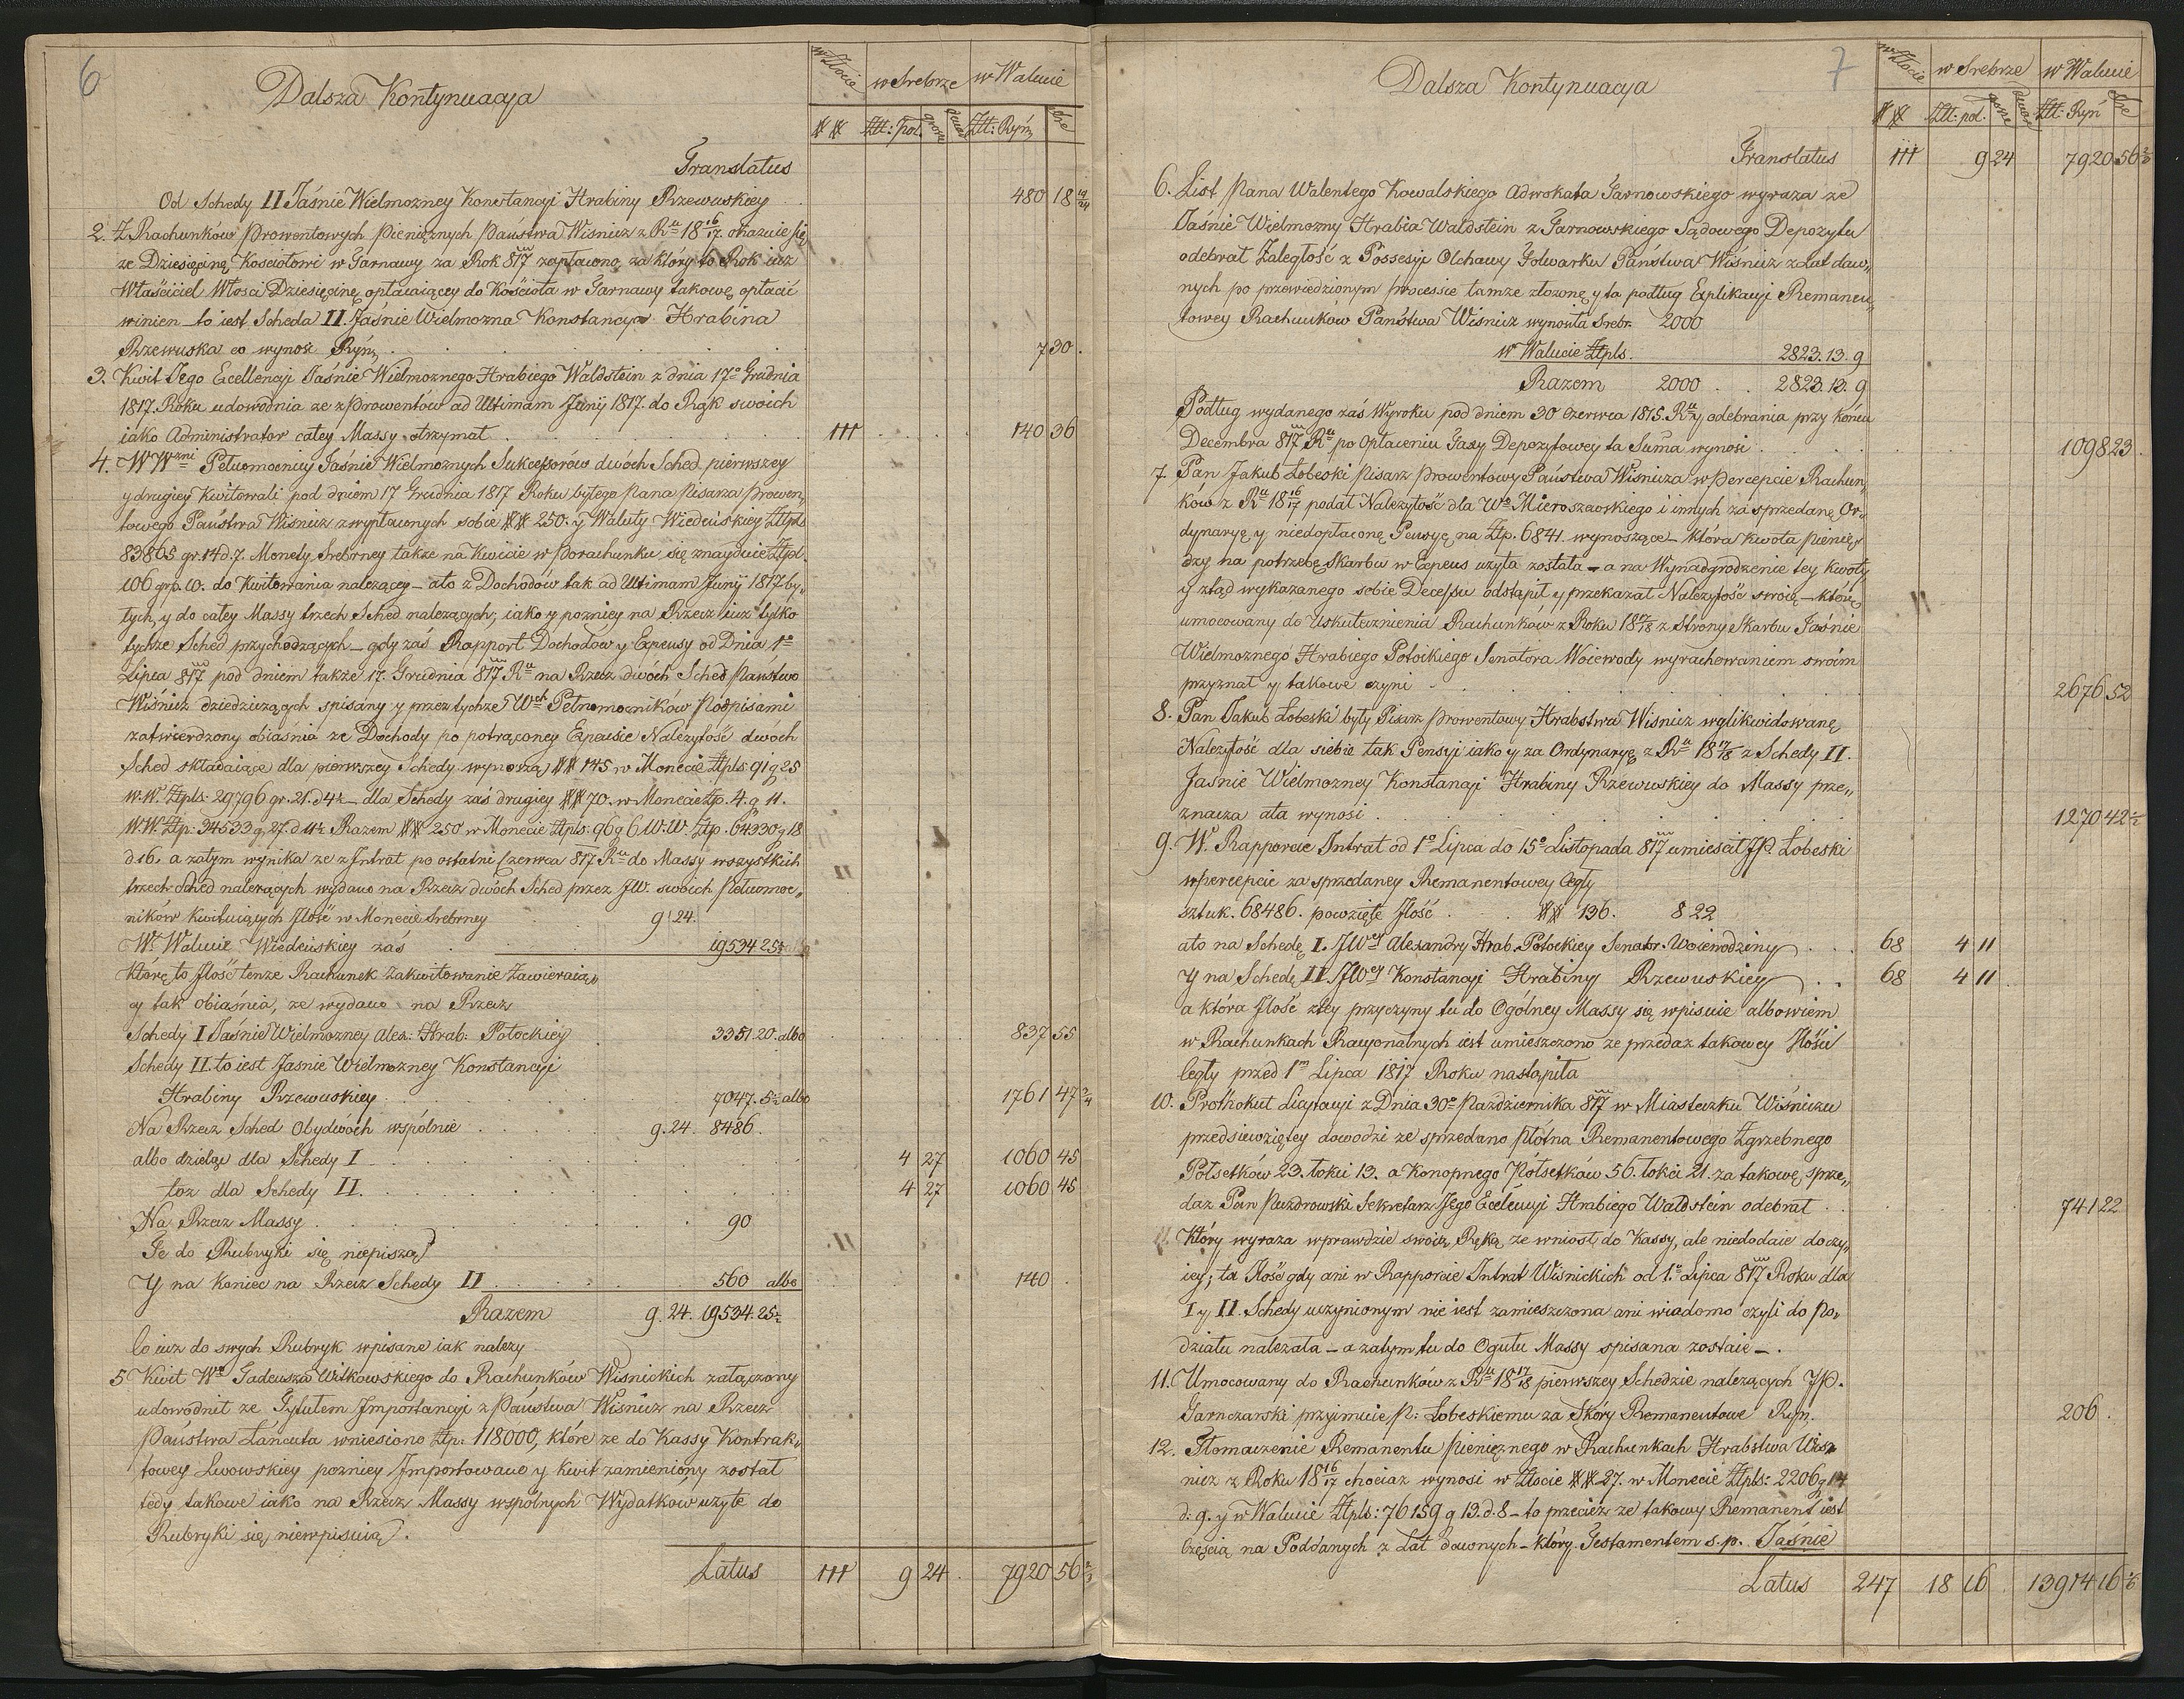 6
Dalsza Kontynuacya
w Złocie w Srebrze w Walucie
## Złt: pol. grosz denar Złt: Ryn. Xre
Translatus
Od Schedy II Jaśnie Wielmozney Konstancyi Hrabiny Rzewuskiey 480 18 19/24
2. Z Rachunków Prowentowych Pieniężnych Państwa Wisnicz z Ru 18 16/17 okazuie się
ze Dziesięcinę Kosciołowi w Tarnawy za Rok 817 zapłacono, za który to Rok iuz
Właściciel Włosci Dziesięcinę opłacaiącey do Kościoła w Tarnawy takowę opłacić
winien to iest Scheda II. Jaśnie Wielmozna Konstancya Hrabina
Rzewuska co wynosi Ryn. 7 30.
3. Kwit Jego Excellencyi Jaśnie Wielmoznego Hrabiego Waldstein z dnia 17o Grudnia
1817. Roku udowodnia ze z Prowentów ad Ultimam Junij 1817. do Rąk swoich
iako Administrator całey Massy otrzymał 111 140 36
4. WWzni Pełnomocnicy Jaśnie Wielmoznych Sukcessorów dwóch Sched pierwszey
y drugiey Kwitowali pod dniem 17 Grudnia 1817 Roku byłego Pana Pisarza Prowen„
towego Państwa Wisnicz z wypłaconych sobie ## 250. y Waluty Wiedeńskiey Złpls
83865 gr. 14 d. 7. Monety Srebrney także na Kwicie w Porachunku się znayduie Złpl.
106 grp. 10. do Kwitowania nalezącey – ato z Dochodów tak ad Ultimam Junij 1817 by„
łych, y do całey Massy trzech Sched nalezących, iako y pozniey na Rzecz iuz tylko
tychze Sched przychodzących – gdy zaś Rapport Dochodow y Expensy od Dnia 1o
Lipca 817 pod dniem także 17. Grudnia 817 Ru na Rzecz dwóch Sched Państwo
Wiśnicz dziedziczących spisany y przez tychze Wch Pełnomocników Podpisami
zatwierdzony obiaśnia ze Dochody po potrąconey Expensie Należytość dwóch
Sched składaiące dla pierwszey Schedy wynoszą ## 145 w Monecie Złpls. 91 g 25
w. W. Złpls: 29796 gr. 21. d 4½ – dla Schedy zaś drugiey ## 70. w Monecie Złp. 4. g 11.
W.W. Złp: 34533 g. 27. d 11½ Razem ## 250 w Monecie Złpls. 96 g 6 W.W. Złp. 64330 g 18
d 16. a zatym wynika ze z Intrat po ostatni Czerwca 817 Ru do Massy wszystkich
trzech Sched nalezących wydano na Rzecz dwóch Sched przez JW. swoich Pełnomoc„
ników Kwituiących Ilość w Monecie Srebrney 9 24.
W. Walucie Wiedeńskiey zaś 19534 25½
którę to Ilość tenze Rachunek Zakwitowanie Zawieraiąc
y tak obiaśnia, ze wydano na Rzecz
Schedy I Jaśnie Wielmozney Alex: Hrab: Potockiey 3351. 20. albo 837 55
Schedy II. to iest Jasnie Wielmozney Konstancyi
Hrabiny Rzewuskiey 7047. 5½ albo 1761 47 3/4
Na Rzecz Sched Obydwóch wspólnie 9. 24. 8486.
albo dzieląc dla Schedy I 4 27 1060 45
toz dla Schedy II. 4 27 1060 45
Na Rzecz Massy 90
Te do Rubryki się niepiszą)
Y na koniec na Rzecz Schedy II 560 albo 140 .
Razem 9. 24. 19534. 25½
Co iuz do swych Rubryk wpisane iak nalezy.
5 Kwit Wo Tadeusza Witkowskiego do Rachunków Wisnickich załączony
udowodnił ze Tytułem Importancyi z Państwa Wiśnicz na Rzecz
Państwa Łańcuta wniesiono Złp. 118000, które ze do Kassy Kontrak„
towey Lwowskiey pozniey Importowano y kwit zamieniony został
tedy takowe iako na Rzecz Massy wspólnych Wydatkow uzyte do
Rubryki się niewpisuią.
Latus 111 9 24 . 7920 56 2/3
7
Dalsza Kontynuacya
w Złocie w Srebrze w Walucie
## Złt: pol. grosze denare Złt: Ryn Xre
Translatus 111 9 24 7920 56 2/3
6. List Pana Walentego Kowalskiego Adwokata Tarnowskiego wyraza ze
Jaśnie Wielmozny Hrabia Waldstein z Tarnowskiego Sądowego Depozytu
odebrał Zaległość z Possesyi Olchawy Folwarku Państwa Wiśnicz z Lat daw„
nych po przewiedzionym processie tamze złozonę y ta podług Explikacyi Remanen„
towey Rachunków Państwa Wiśnicz wynosiła Srebr. 2000
w Walucie Złpls. 2823. 13. 9
Razem 2000 . . 2823. 13. 9
Podług wydanego zaś Wyroku pod dniem 30 Czerwca 1815. Ru y odebrania przy końcu
Decembra 817 Ru po Opłaceniu Taxy Depozytowey ta Suma wynosi 1098 23 .
7. Pan Jakub Łobeski Pisarz Prowentowy Państwa Wisnicza w Percepcie Rachun„
ków z Ru 18 16/17 podał Nalezytość dla Wo Mieroszewskiego i innych za sprzedaną Or„
dynaryę y niedopłaconę Pensyę na Złp. 6841. wynoszące – która kwota pienię„
dzy na potrzebę Skarbu w Expens uzyta została – a na Wynadgrodzenie tey kwoty,
y ztąd wykazanego sobie Decessu odstąpił y przekazał Nalezytość swoię – którę
umocowany do Uskutecznienia Rachunków z Roku 18 17/18 z Strony Skarbu Jaśnie
Wielmoznego Hrabiego Potockiego Senatora Woiewody wyrachowaniem swoim
przyznał y takowe czyni 2676 52
8. Pan Jakub Łobeski były Pisarz Prowentowy Hrabstwa Wisnicz wylikwidowanę
Nalezytość dla siebie tak Pensyi iako y za Ordynaryę z Ru 18 17/18 z Schedy II.
Jasnie Wielmozney Konstancyi Hrabiny Rzewuskiey do Massy prze„
znacza ata wynosi 1270 42½
9. W. Rapporcie Intrat od 1o Lipca do 15o Listopada 817 umieścił JP. Łobeski
w percepcie za sprzedaney Remanentowey Cegły
sztuk. 68486. powzięte Ilość ## 136. 8 22
ato na Schedę I. JWey Alexandry Hrab. Potockiey Senator. Woiewodziny 68 4 11
Y na Schedę II JWey Konstancyi Hrabiny Rzewuskiey 68 4 11
a która Ilość z tey przyczyny tu do Ogólney Massy się wpisuie albowiem
w Rachunkach Racyonalnych iest umieszczono ze przedaz takowey Ilości
Cegły przed 1m Lipca 1817 Roku nastąpiła
10. Prothokuł Licytacyi z Dnia 30o Października 817 w Miasteczku Wiśniczu
przedsiewziętey dowodzi ze sprzedano płótna Remanentowego Zgrzebnego
Półsetków 23. łokci 13. a Konopnego Półsetków 56. łokci 21. za takowę sprze„
daz Pan Puzdrowski Sekretarz Jego Excelencyi Hrabiego Waldstein odebrał 741 22
Który wyraza wprawdzie swoią Ręką ze wniosł do Kassy, ale niedodaie do czy„
iey; ta Ilość gdy ani w Rapporcie Intrat Wiśnickich od 1o Lipca 817 Roku dla
I y II. Schedy uczynionym nie iest zamieszczona ani wiadomo czyli do Po„
działu nalezała – a zatym tu do Ogułu Massy spisana zostaie –.
11. Umocowany do Rachunków z Ru 18 17/18 pierwszey Schedzie nalezących JP.
Garnczarski przyimuie P: Łobeskiemu za Skóry Remanentowe Ryn. 206 .
12. Tłomaczenie Remanentu pienięznego w Rachunkach Hrabstwa Wis„
nicz z Roku 18 16/17 chociaz wynosi w Złocie ## 27. w Monecie Złpls: 2206 g 14
d: 9. y w Walucie Złpls: 76159 g 13. d. 8 – to przeciez ze takowy Remanent iest
Częścią na Poddanych z Lat dawnych – który Testamentem s.p. Jaśnie
Latus 247 18 16 . 13914 16 1/6